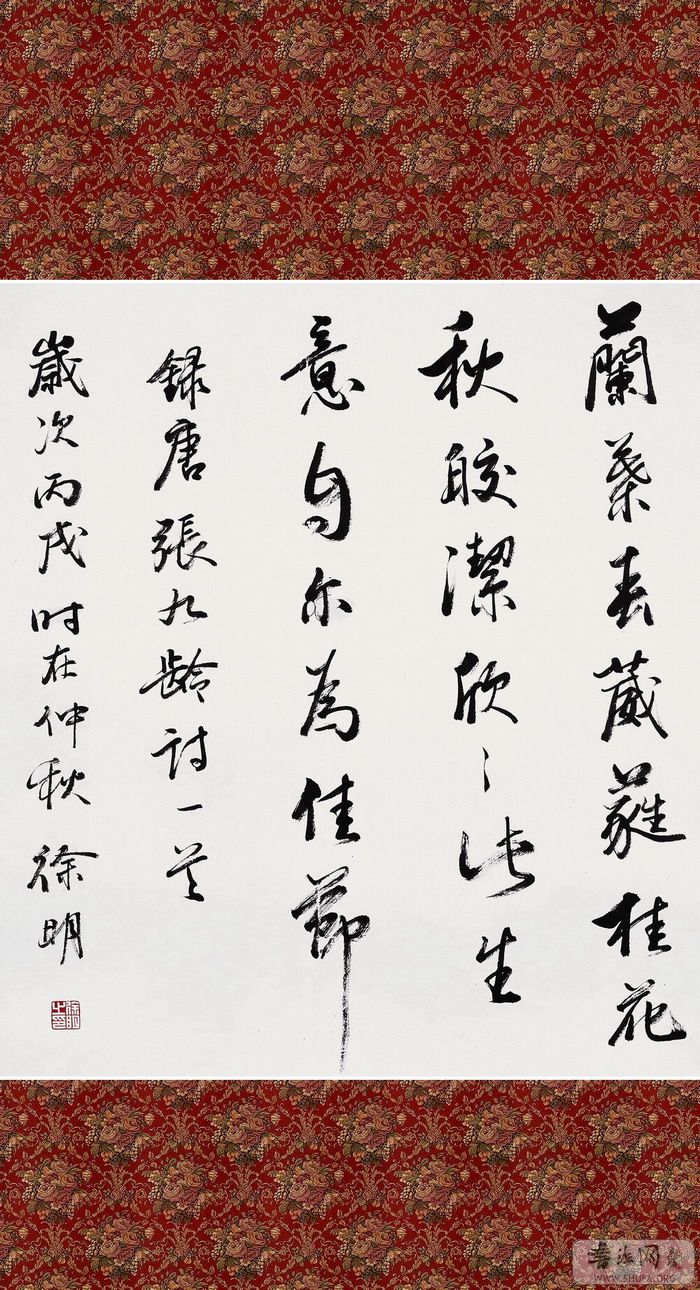 蘭葉春葳蕤桂花
秋皎潔欣〻此生
意自尔為佳節
録唐張九齡詩一首
歲次丙戌时在仲秋 徐明
徐明之印
書法网
WWW.SHUFA.ORG